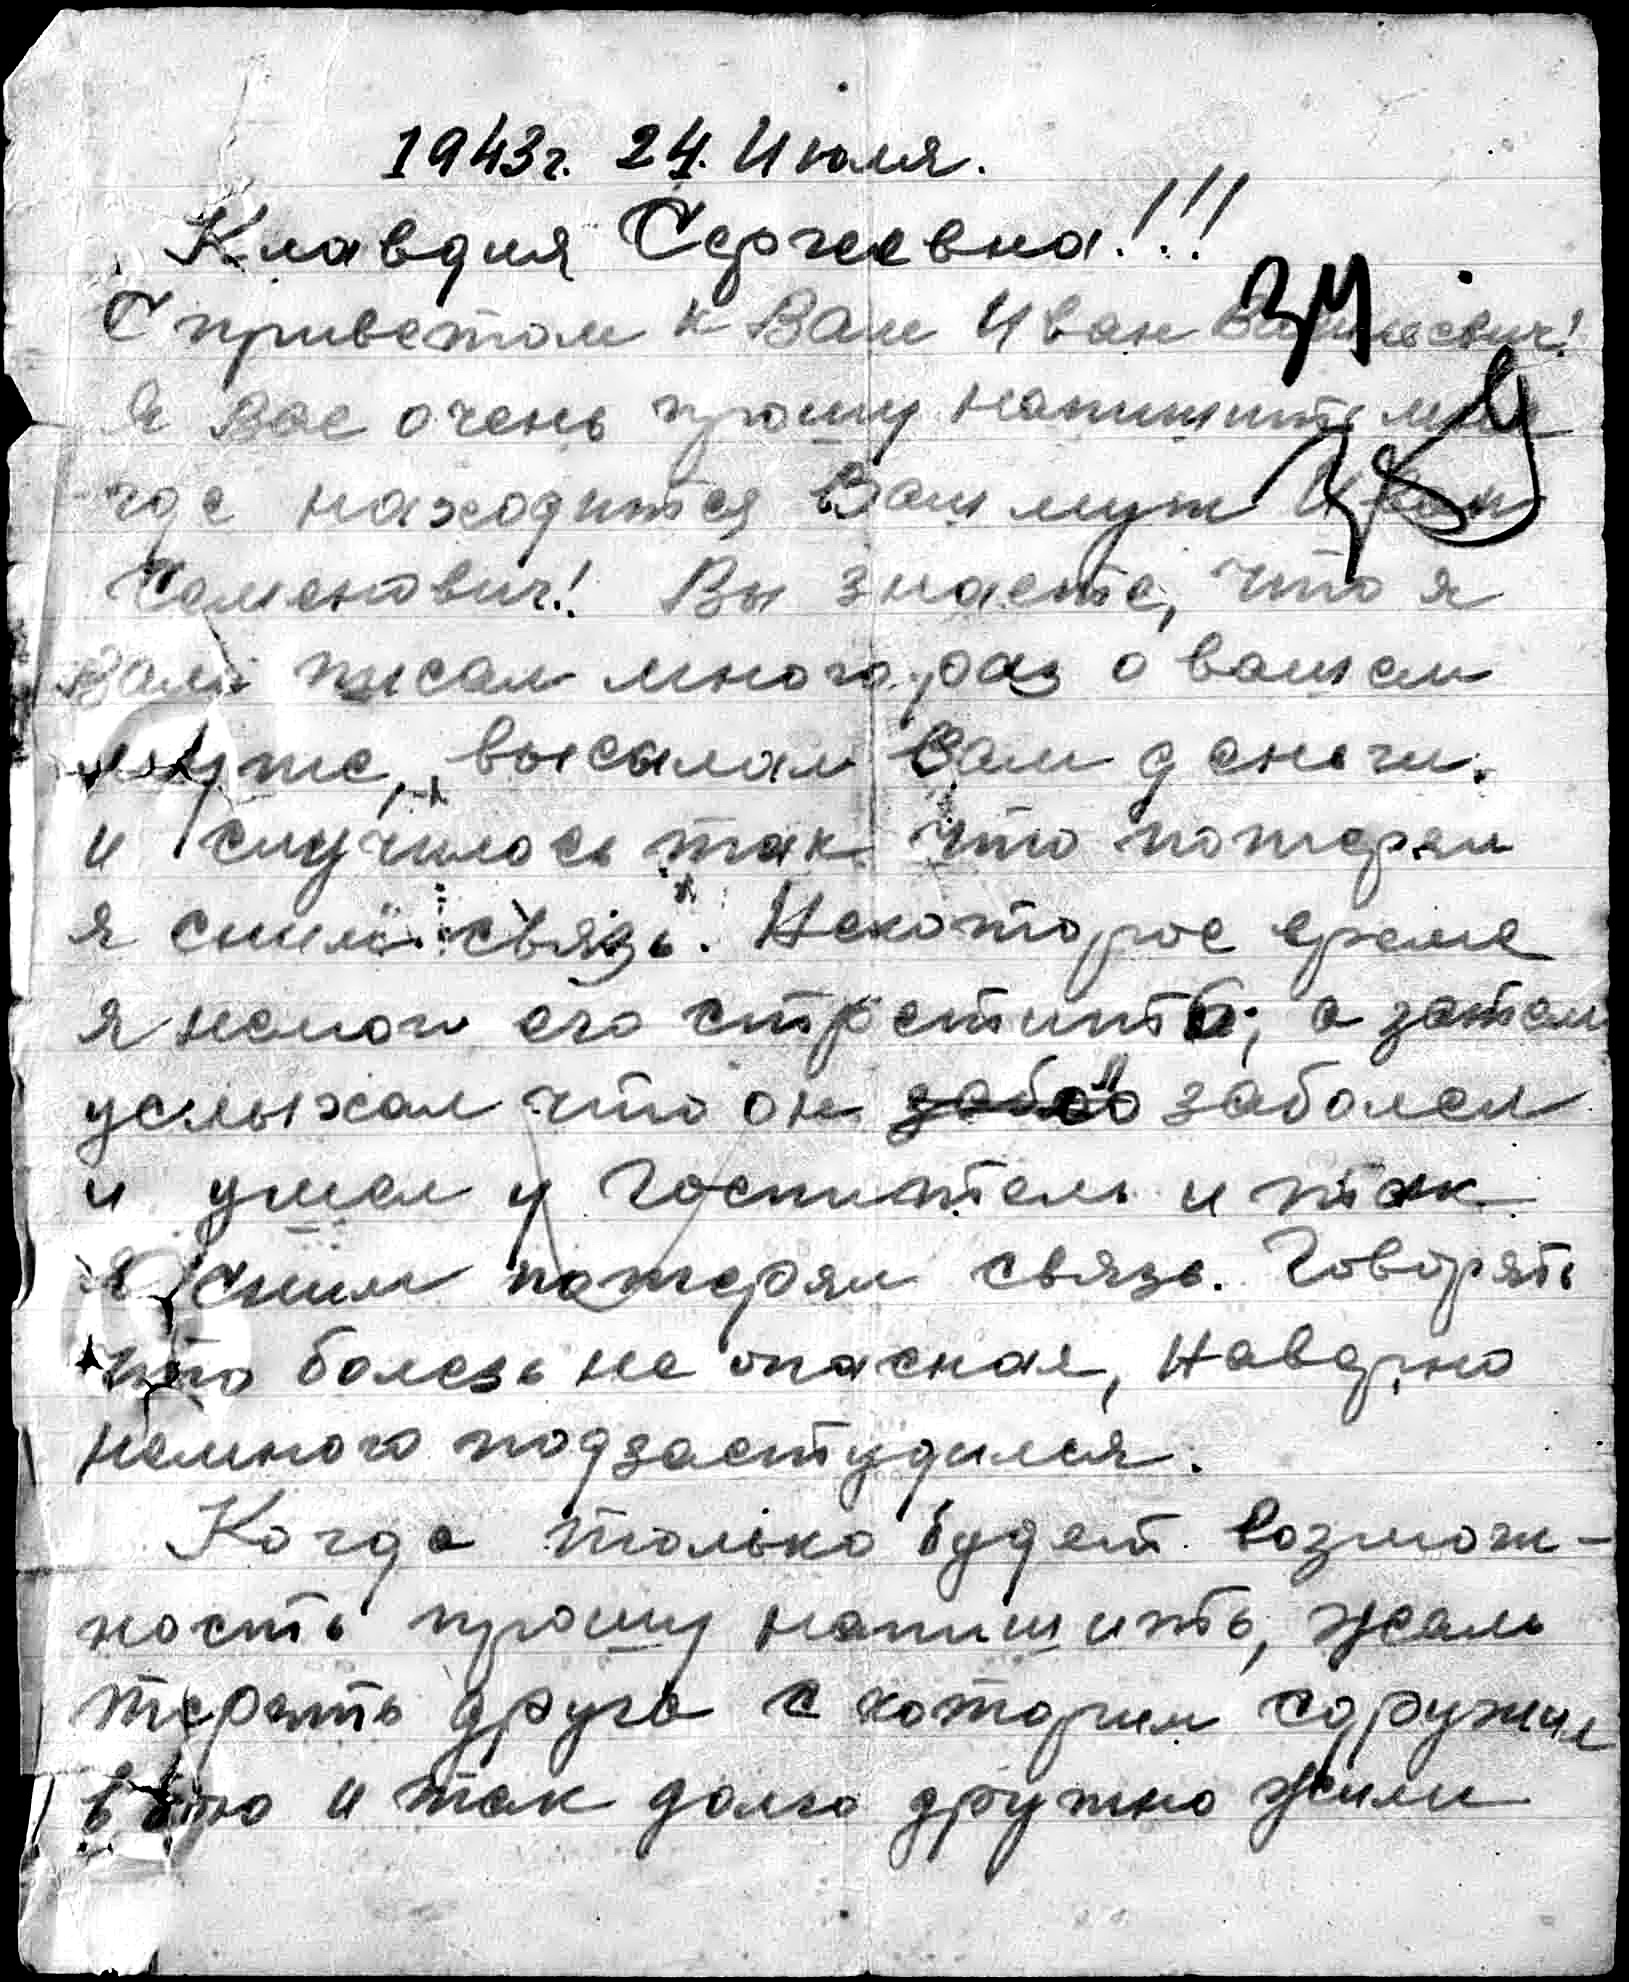 1943г. 24. Июля.
Клавдия Сергеевна!!!
С приветом к Вам Иван
Я Вас очень прошу напишите мне
где находится Ваш муж Иван
Саменович! Вы знаете, что я
Вам писал много раз о вашем
муже, высылал Вам деньги.
и случилось так что потерял
я сним связь. Некоторое время
я немог его стретить, а затем
услыхал что он забол заболел
и ушел у госпиталь и так
я сним потерял связь. Говорять
что болезь не опасная, наверно
немного подзастудился.
Когда только будет возмож-
ность прошу напишить, жаль
терять друга с которим сдружил
и так долго дружно жили